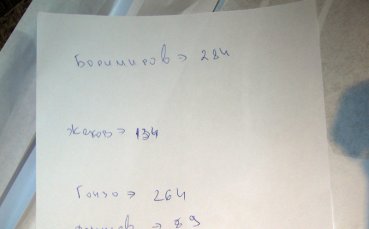 Боримиров => 284
Жеков => 134
Гонзо => 264
=> 89